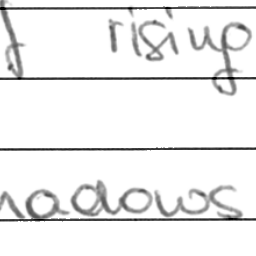 rising
hadows